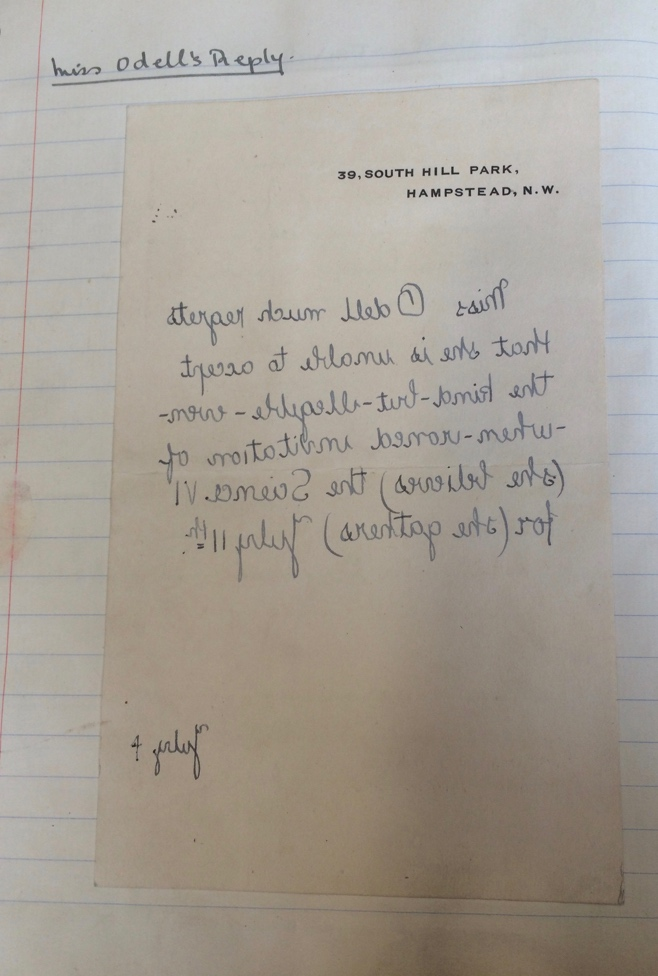 Miss Odell's Reply.
39, SOUTH HILL PARK,
HAMPSTEAD, N.W.
Miss Odell much regrets
that she is unable to accept
the kind-but-illegible-even-
-when-roned invitation of
(she believes) the Science VI
for (she gathers) July 11th.
July 4